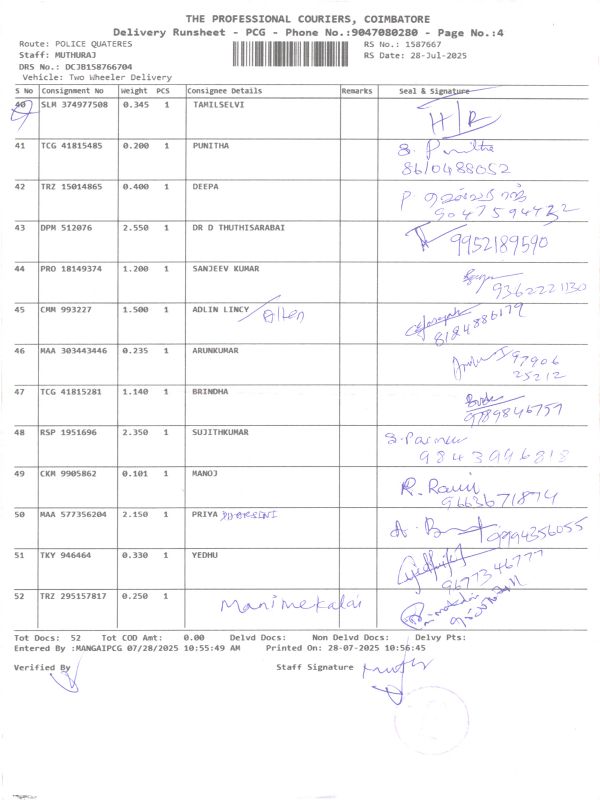 THE PROFESSIONAL COURIERS, COIMBATORE
Delivery Runsheet - PCG - Phone No.:9047080280 - Page No.:4
Route: POLICE QUATERES RS No.: 1587667
Staff: MUTHURAJ RS Date: 28-Jul-2025
DRS No.: DCJB158766704
Vehicle: Two Wheeler Delivery
S No Consignment No Weight PCS Consignee Details Remarks Seal & Signature
40 SLM 374977508 0.345 1 TAMILSELVI H/R
41 TCG 41815485 0.200 1 PUNITHA S. Punitha
8610488052
42 TRZ 15014865 0.400 1 DEEPA P
43 DPM 512076 2.550 1 DR D THUTHISARABAI 9952189590
44 PRO 18149374 1.200 1 SANJEEV KUMAR
9362221130
45 CMM 993227 1.500 1 ADLIN LINCY / Allen Joseph
8124886179
46 MAA 303443446 0.235 1 ARUNKUMAR 97906
25212
47 TCG 41815281 1.140 1 BRINDHA
9789846757
48 RSP 1951696 2.350 1 SUJITHKUMAR S.
9843996818
49 CKM 9905862 0.101 1 MANOJ R. Ravi
9663671874
50 MAA 577356204 2.150 1 PRIYA 9994356055
51 TKY 946464 0.330 1 YEDHU
9677346777
52 TRZ 295157817 0.250 1 Manimekalai
Tot Docs: 52 Tot COD Amt: 0.00 Delvd Docs: Non Delvd Docs: Delvy Pts:
Entered By :MANGAIPCG 07/28/2025 10:55:49 AM Printed On: 28-07-2025 10:56:45
Verified By Staff Signature